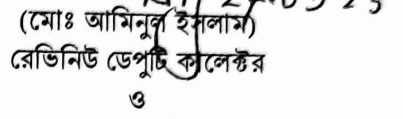 (মোঃ আমিনুল ইসলাম)
রেভিনিউ ডেপুটি কালেক্টর
ও